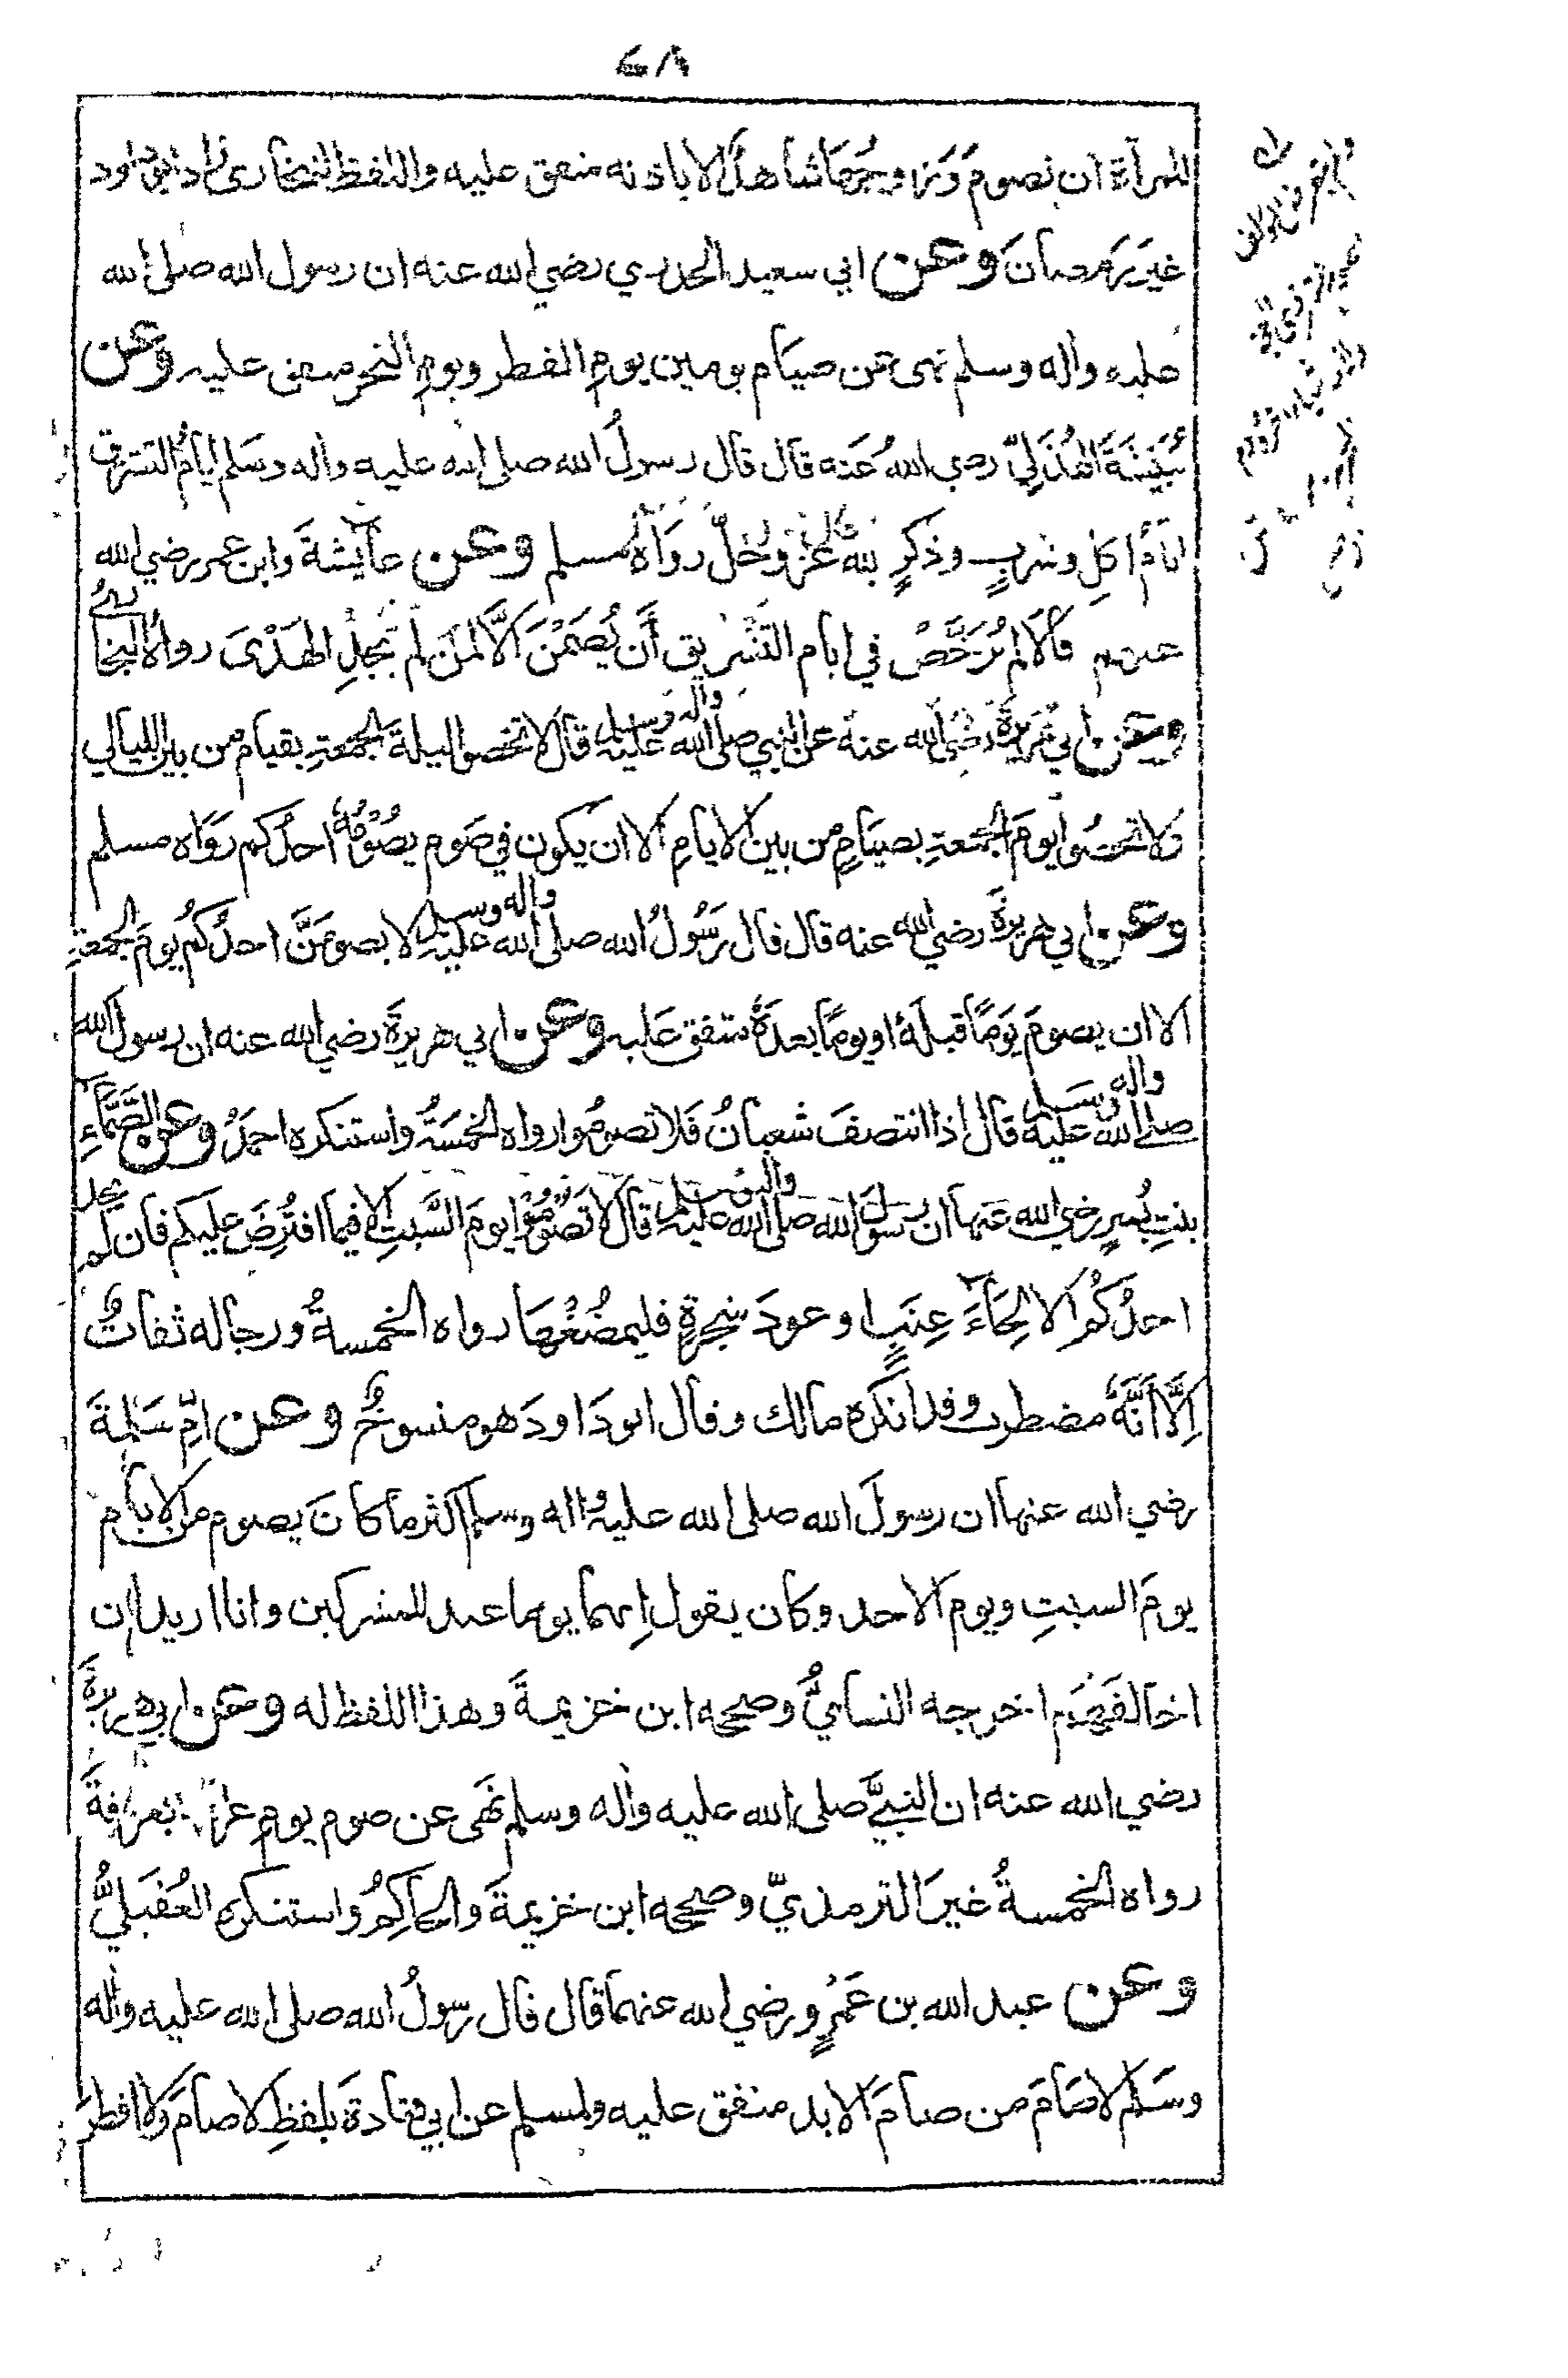 ٤٨
للمرأة ان تصومَ وَزوجُهَا شاهدٌ الا باذنه متفق عليه واللفظ للبخاري زاد ابو داود
غيرَ رمضانَ وعن ابي سعيد الخدري رضي الله عنه ان رسول الله صلى الله
عليه واله وسلم نهى عن صيام يومين يوم الفطر ويوم النحر متفق عليه وعن
نُبَيْشَةَ الهُذَلِيّ رضي اللهُ عَنه قال قال رسولُ الله صلى الله عليه واله وسَلم ايامُ التشريق
ايامُ اكلٍ وشربٍ وذكرٍ لله عزّ وجلّ رَوَاهُ مسلم وعن عايشةَ وابن عمر رضي الله
عنهم قالا لم يُرَخَّصْ في ايام التَّشْريق أَن يُصَمْنَ الّا لمَن لم يَجدِ الهَدْىَ رواهُ البخاريُّ
وعن ابي هُرَيْرَةَ رضي الله عنهُ عن النبي صلى الله عليه واله وسلم قال لا تخصوا ليلةَ الجمعةِ بقيام من بين الليالي
ولا تخصُّوا يومَ الجمعةِ بصيامٍ من بين الايامِ الا ان يكون في صَوم يصُوْمُهُ احدُكم رَوَاه مسلم
وعن ابي هريرةَ رضي الله عنه قال قال رَسُولُ الله صلى الله عليه واله وسلم لا يصومَنَّ احدُكُم يومَ الجمعةِ
الا ان يصومَ يَوَمًا قبلَهُ او يومًا بعدَهُ متفق عَليه وعن ابي هريرةَ رضي الله عنه ان رسول الله
صلى الله عليه واله وسلم قال اذا انتصفَ شعبانُ فَلا تصومُوا رواه الخمسَةُ واستنكره احمدُ وعن الصَّمَّاءِ
بنتِ بُسرٍ رضي الله عنها ان رسولَ الله صلى الله عليه واله وسلم قال لا تَصُوْمُوْا يومَ السَّبتِ الا فيما افتُرِضَ عليكم فان لم يجد
احدُكُم الا لِحَاءَ عِنَبٍ او عودَ شجرةٍ فليمضُغْهَا رواه الخمسةُ ورجاله ثقاتٌ
اِلّا اَنَّهُ مضطرب وقد انكره مالك وقال ابودَاودَ هو منسوخٌ وعن امِّ سَلمةَ
رضي الله عنها ان رسولَ الله صلى الله عليه واله وسلم اكثر ما كانَ يصوم من الايام
يومَ السبتِ ويوم الاحد وكان يقول اِنهما يوما عيد للمشركين وانا اريد ان
اخالفَهُم اخرجه النسايُّ وصححه ابن خزيمةَ وهذا اللفظ له وعن ابي هريرةَ
رضي الله عنه ان النبيَّ صلى الله عليه واله وسلم نَهى عن صوم يوم عرفة بعرفةَ
رواه الخمسةُ غيرَ الترمذيّ وصححه ابن خزيمةَ والحاكِمُ واستنكره العُقَيليُّ
وعن عبد الله بن عَمْرٍو رضي الله عنهما قال قال رسولُ الله صلى الله عليه واله
وسَلم لا صَامَ من صامَ الابد متفق عليه ولمسلم عن ابي قتادةَ بلفظِ لا صامَ ولا افطرَ